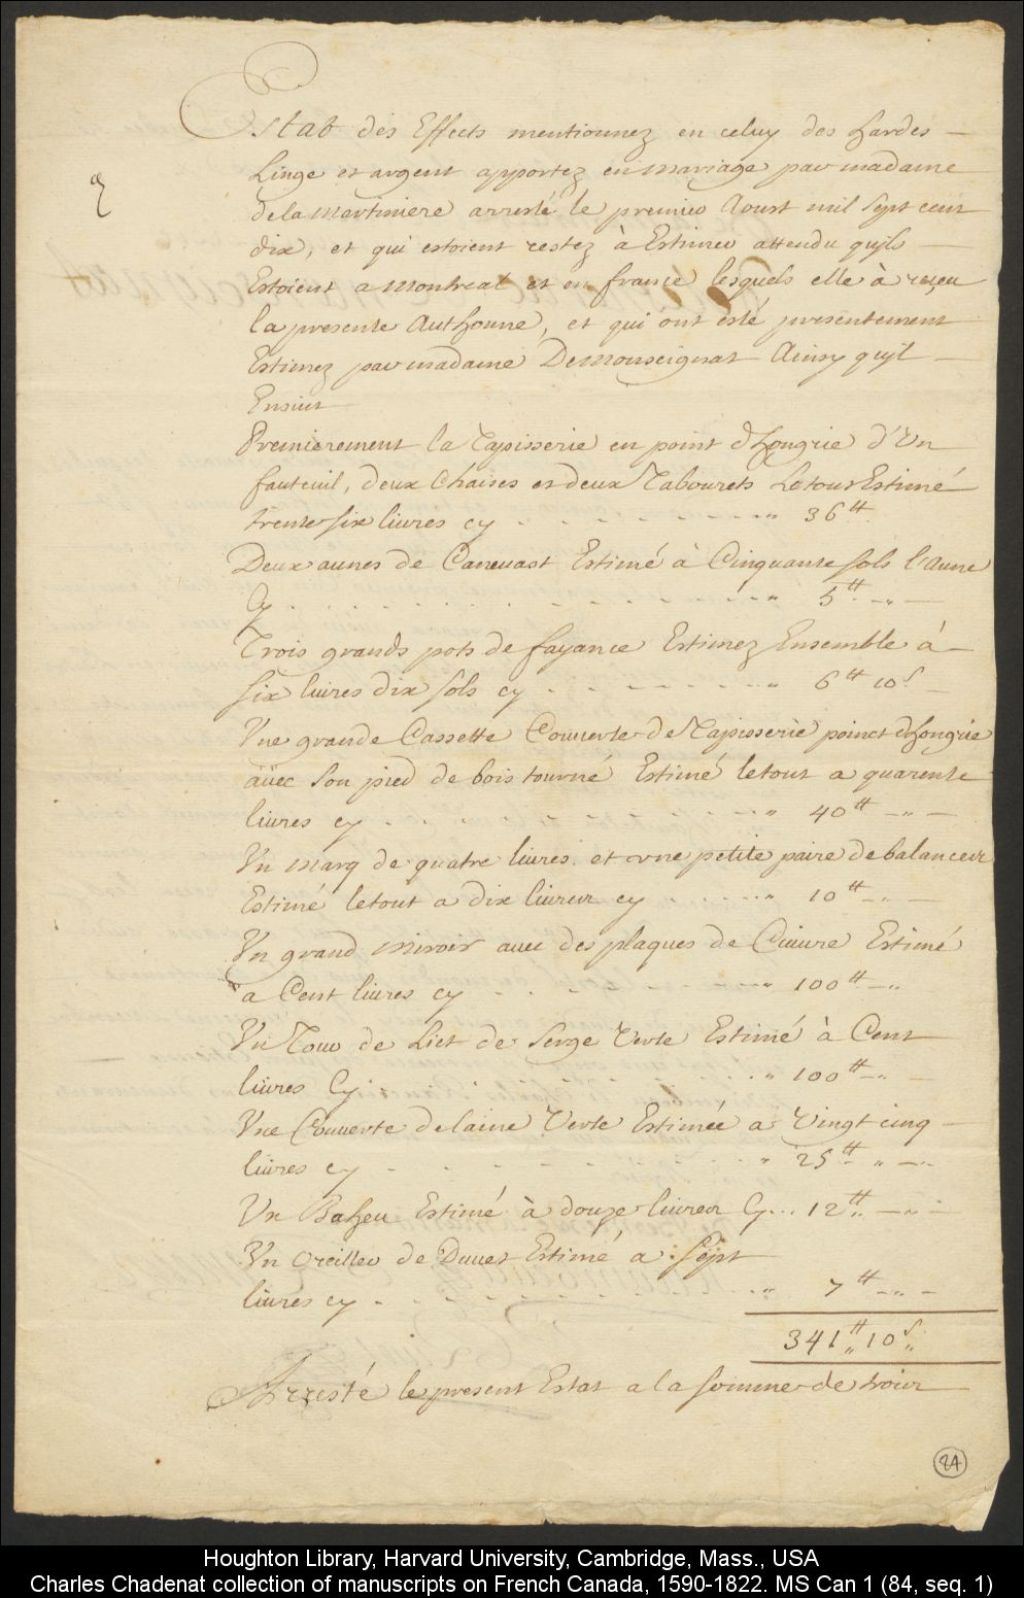 Estat des Effects mentionnez en celuy des hardes
Linge et argent apportez en mariage par madame
de la martiniere arresté le premier Aoust mil sept cent
dix, et qui estoient restez à Estimer attendu quils
Estoient a montreal et en france lesquels elle à reçeu
la presente Authonne, et qui ont esté presentement
Estimez par madame Demonseignat Ainsy quil
Ensuit
Premierement la Tapisserie en point dhongrie d'Un
fauteuil, deux Chaises et deux Tabourets Letout Estimé
trente six livres cy . . . . . . . . . 36tt
Deux aunes de Caneuast Estimé à Cinquante sols l'aune
Cy . . . . . . . . . . . . . . . 5tt
Trois grands pots de fayance Estimez Ensemble à
six livres dix sols cy . . . . . . . . 6tt 10s
Vne grande Cassette Couuerte de Tapisserie poinct dhongrie
auec son pied de bois tourné Estimé letout a quarente
liures cy . . . . . . . . . . . . 40tt
Vn marq de quatre liures et vne petite paire de balances
Estimé letout a dix liures cy . . . . . . 10tt
Vn grand miroir auec des plaques de Cuiure Estimé
a Cent liures cy . . . . . . . . . 100tt
Vn Tour de Lict de serge Verte Estimé à Cent
liures Cy . . . . . . . . . . . 100tt
Vne Couuerte de laine Verte Estimée a Vingt cinq
liures cy . . . . . . . . . . . 25tt
Vn Baheu Estimé à douze liures Cy . . . 12tt
Vn Oreiller de Duuet Estimé a Sept
liures cy . . . . . . . . . . . 7tt
341tt 10s
Arresté le present Estat a la somme de trois
84
Houghton Library, Harvard University, Cambridge, Mass., USA
Charles Chadenat collection of manuscripts on French Canada, 1590-1822. MS Can 1 (84, seq. 1)